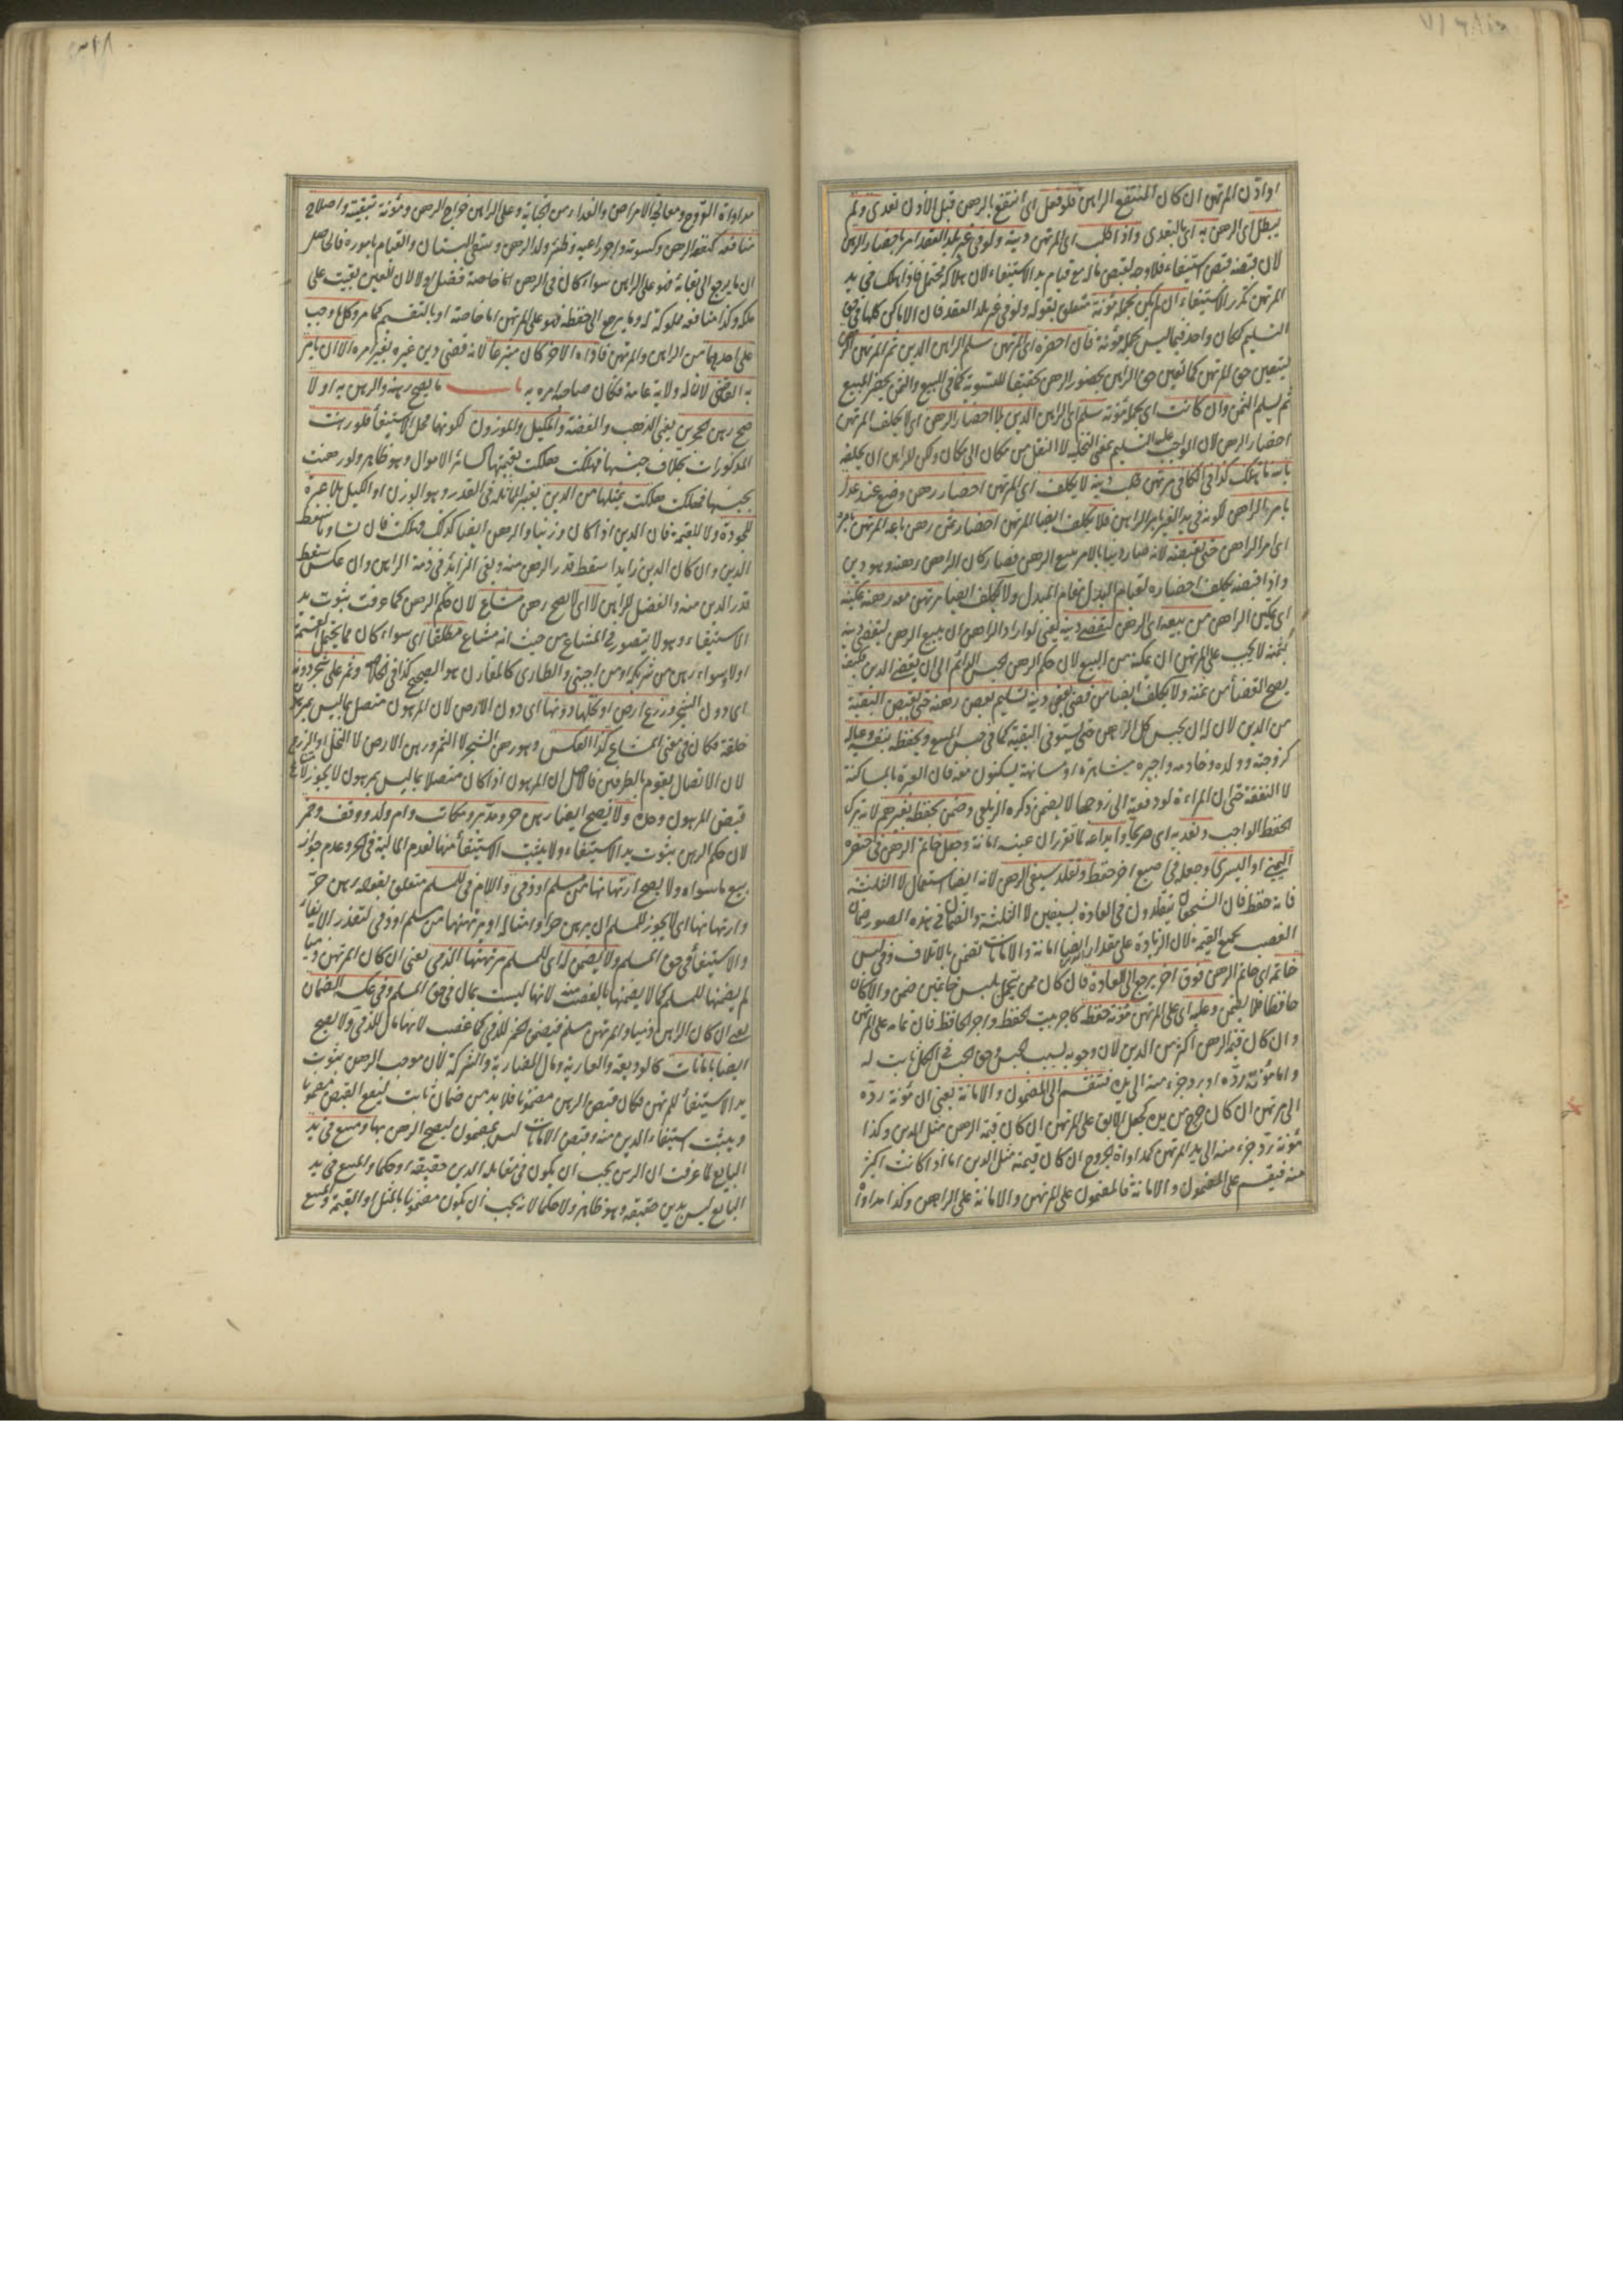 او اذن المرتهن ان كان المنتفع الراهن فلو فعل اى انتفع بالرهن قبل الاذن تعدى ولم
يبطل اى الرهن به اى بالتعدى واذا طلب اى المرتهن دينه ولو فى غير بلد العقد امر باحضار الرهن
لان قبضه قبض استيفاء فلا وجه لقبض ماله مع قيام يد الاستيفاء لان هلاكه محتمل فاذا هلك فى يد
المرتهن تكرر الاستيفاء ان لم يكن لحمله مؤنة متعلق بقوله ولو فى غير بلد العقد فان الاماكن كلها فى حق
التسليم كمكان واحد فيما ليس لحمله مؤنة فان احضره اى المرتهن سلم الراهن الدين ثم المرتهن الرهن
ليتعين حق المرتهن كما تعين حق الراهن بحضور الرهن تحقيقا للتسوية كما فى المبيع والثمن يحضر المبيع
ثم يسلم الثمن وان كانت اى لحمله مؤنة سلم اى الراهن الدين بلا احضار الرهن اى لا يكلف المرتهن
احضار الرهن لان الواجب عليه التسليم بمعنى التخلية لا النقل من مكان الى مكان ولكن للراهن ان يحلفه
بالله ما هلك كذا فى الكافى مرتهن طلب دينه لا يكلف اى المرتهن احضار رهن وضع عند عدل
بامر الراهن لكونه فى يد الغير بامر الراهن فلا يكلف ايضا المرتهن احضار ثمن رهن باعه المرتهن بامره
اى امر الراهن حتى يقبضه لانه صار دينا بالامر ببيع الرهن فصار كان الراهن رهنه وهو دين
واذا قبضه يكلف احضاره لقيام البدل مقام المبدل ولا يكلف ايضا مرتهن معه رهنه تمكينه
اى تمكين الراهن من بيعه اى الرهن ليقضى دينه يعنى لو اراد الراهن ان يبيع الرهن ليقضى دينه
بثمنه لا يجب على المرتهن ان يمكنه من البيع لان حكم الرهن الحبس الدائم الى ان يقضى الدين فكيف
يصح القضاء من ثمنه ولا يكلف ايضا من قضى بعض دينه تسليم بعض رهنه حتى يقبض البقية
من الدين لان له ان يحبس كل الرهن حتى يستوفى البقية كما فى حبس المبيع ويحفظه بنفسه وعياله
كزوجته وولده وخادمه واجيره مشاهرة او مسانهة يسكنون معه فان العبرة بالمساكنة
لا النفقة حتى ان المراءة لو دفعته الى زوجها لا يضمن ذكره الزيلعى وضمن بحفظه بغيرهم لانه ترك
الحفظ الواجب وتعديه اى صريحا وايداعه لما تقرر ان عينه امانة وجعل خاتم الرهن فى خنصره
اليمنى او اليسرى وجعله فى اصبع اخر حفظ وتقلد سيفى الرهن لانه ايضا استعمال لا الثلثة
فانه حفظ فان الشجعان يتقلدون فى العادة بسيفين لا الثلثة والضمان فى هذه الصور ضمان
الغصب بجميع القيمة لان الزيادة على مقدار الدين ايضا امانة والامانات تضمن بالاتلاف وفى لبس
خاتمه اى خاتم الرهن فوق اخر يرجع الى العادة فان كان ممن يتجمل بلبس خاتمين ضمن والا كان
حافظا فلا يضمن وعليه اى على المرتهن مؤنة حفظه كاجر بيت لحفظه واجر الحافظ فان تمامه على المرتهن
وان كان قيمة الرهن اكثر من الدين لان وجوبه بسبب الحبس وحق الحبس فى الكل ثابت له
واما مؤنة رده او رد جزء منه الى يده فتنقسم الى المضمون والامانة يعنى ان مؤنة رده
الى مرتهن ان كان خرج من يده كجعل الابق على المرتهن ان كان قيمة الرهن مثل الدين وكذا
مؤنة رد جزء منه الى يد المرتهن كمداواة الجروح ان كان قيمته مثل الدين اما اذا كانت اكثر
منه فيقسم على المضمون والامانة فالمضمون على المرتهن والامانة على الراهن وكذا مداواة
مداواة القروح ومعالجة الامراض والفداء من الجناية وعلى الراهن خراج الرهن ومؤنة تبقيته واصلاح
منافعه كنفقة الرهن وكسوته واجر راعيه وظئر ولد الرهن وسقى البستان والقيام باموره فالحاصل
ان ما يرجع الى بقائه فهو على الراهن سواء كان فى الرهن فضل اولا لان العين بقيت على
ملكه وكذا منافعه مملوكة له وما يرجع الى حفظه فهو على المرتهن اما خاصة او بالتقسيم كما مر وكل ما وجب
على احدهما من الراهن والمرتهن فاداه الاخر كان متبرعا لانه قضى دين غيره بغير امره الا ان يامر
به القاضى لان له ولاية عامة فكان صاحبه امره به باب ما يصح رهنه والرهن به او لا
صح رهن الحجرين يعنى الذهب والفضة والمكيل والموزون لكونها محل الاستيفاء فلو رهنت
المذكورات بخلاف جنسها فهلكت هلكت بقيمتها كسائر الاموال وهو ظاهر ولو رهنت
بجنسها فهلكت هلكت بمثلها من الدين يعتبر المماثلة فى القدر وهو الوزن او الكيل بلا عبرة
للجودة ولا للقيمة فان الدين اذا كان وزنيا والرهن ايضا كذلك فهلكت فان تساويا سقط
الدين وان كان الدين زايدا سقط قدر الرهن منه وبقى الزائد فى ذمة الراهن وان عكس سقط
قدر الدين منه والفضل للراهن لا اى لا يصح رهن مشاع لان حكم الرهن كما عرفت ثبوت يد
الاستيفاء وهو لا يتصور فى المشاع من حيث انه مشاع مطلقا اى سواء كان مما يحتمل القسمة
اولا وسواء رهن من شريكه او من اجنبى والطارى كالمقارن هو الصحيح كذا فى وثمر على شجر دونه
اى دون الشجر وزرع ارض او نخلها دونها اى دون الارض لان المرهون متصل بما ليس بمرهون
خلقة فكان فى معنى المشاع كذا العكس وهو رهن الشجر لا الثمر ورهن الارض لا النخل او الزرع
لان الاتصال يقوم بالطرفين فالاصل ان المرهون اذا كان متصلا بما ليس بمرهون لا يجوز لامتناع
قبض المرهون وحده ولا يصح ايضا رهن حر ومدبر ومكاتب وام ولد ووقف وخمر
لان حكم الرهن ثبوت يد الاستيفاء ولا يثبت الاستيفاء منها لعدم المالية فى الحر وعدم جواز
بيع ما سواه ولا يصح ارتهانها من مسلم او ذمى واللام فى للمسلم متعلق بقوله رهن خمر
وارتهانها اى لا يجوز للمسلم ان يرهن خمرا وامثاله او يرتهنها من مسلم او ذمى لتعذر الايفاء
والاستيفاء فى حق المسلم ولا يضمن له اى للمسلم مرتهنها الذمى يعنى ان كان المرتهن ذميا
لم يضمنها للمسلم كما لا يضمنها بالغصب منه لانها ليست بمال فى حق المسلم وفى عكسه الضمان
يعنى ان كان الراهن ذميا والمرتهن مسلم فيضمن الخمر للذمى كما غصب لانها مال للذمى ولا يصح
ايضا بامانات كالوديعة والعارية ومال المضاربة والشركة لان موجب الرهن ثبوت
يد الاستيفاء للمرتهن فكان قبض الرهن مضمونا فلا بد من ضمان ثابت ليقع القبض مضمونا
ويثبت استيفاء الدين منه وقبض الامانات ليس بمضمون ليصح الرهن بها ومبيع فى يد
البايع لما عرفت ان الرهن يجب ان يكون فى مقابلة الدين حقيقة او حكما والمبيع فى يد
البايع ليس بدين حقيقة وهو ظاهر ولا حكما لانه يجب ان يكون مضمونا بالمثل او القيمة والمبيع